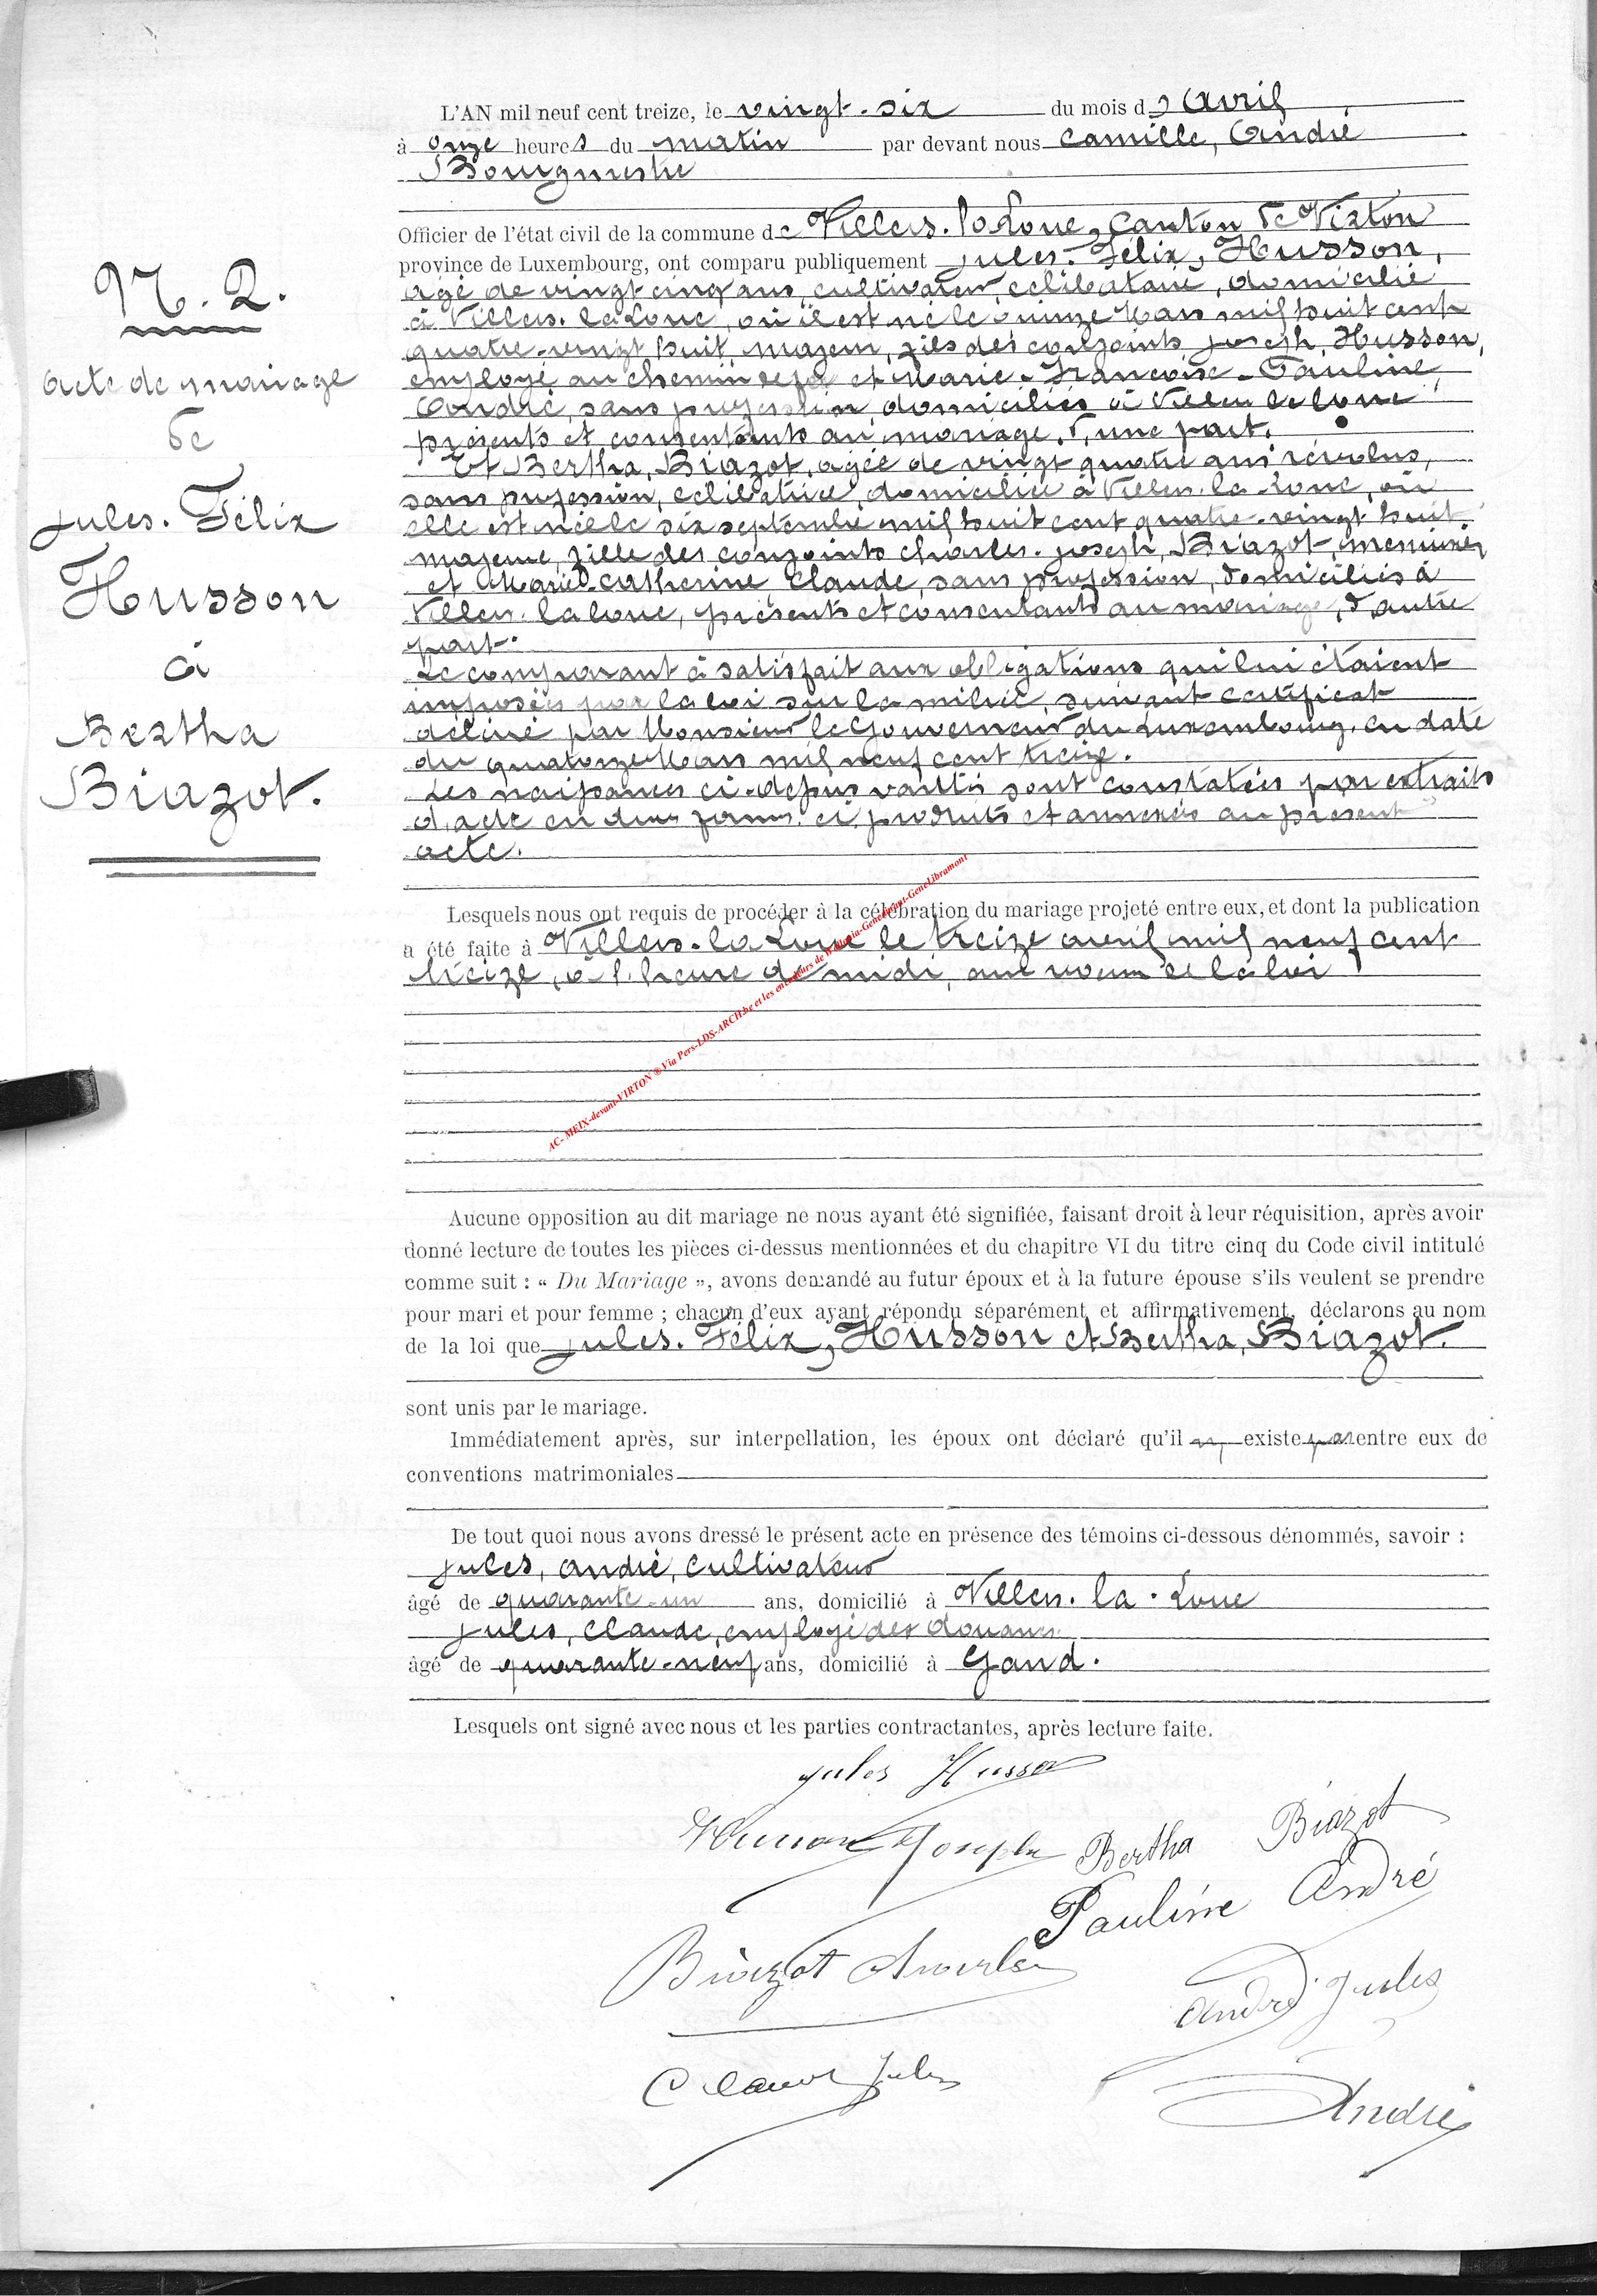 L'AN mil neuf cent treize, le vingt-six du mois d'Avril
à onze heures du matin par devant nous Camille, André
Bourgmestre
Officier de l'état civil de la commune de Villers-la-Loue, Canton de Virton
province de Luxembourg, ont comparu publiquement Jules-Félix, Husson,
âgé de vingt cinq ans, cultivateur, célibataire, domicilié
à Villers-la-Loue, où il est né le quinze Mars mil huit cent
quatre-vingt huit, majeur, fils des conjoints Joseph, Husson,
employé au chemin de fer et Marie-Françoise-Pauline,
André, sans profession, domiciliés à Villers-la-Loue
présents et consentants au mariage, d'une part.
Et Bertha, Biazot, agée de vingt quatre ans révolus,
sans profession, célibatrice, domiciliée à Villers-la-Loue, où
elle est née le six septembre mil huit cent quatre-vingt huit
majeure, fille des conjoints Charles-Joseph, Biazot, menuisier
et Marie-Catherine, Claude, sans profession, domiciliés à
Villers-la-Loue, présents et consentants au mariage, d'autre
part.
Le comparant à satisfait aux obligations qui lui étaient
imposées par la loi sur la milice, suivant certificat
délivré par Monsieur le Gouverneur du Luxembourg, en date
du quatorze Mars mil neuf cent treize.
Les naissances ci-dessus sont constatées par extraits
d'acte en due forme, ci produits et annexés au présent
acte.
N. 2.
Acte de mariage
de
Jules-Félix
Husson
à
Bertha
Biazot.
Lesquels nous ont requis de procéder à la célébration du mariage projeté entre eux, et dont la publication
a été faite à Villers-la-Loue le treize avril mil neuf cent
treize, à l'heure de midi, au vœu de la loi
AC- MEIX-devant-VIRTON ® Via Pers-LDS-ARCH.be et les de Wallonia-Genedinant-GeneLibramont
Aucune opposition au dit mariage ne nous ayant été signifiée, faisant droit à leur réquisition, après avoir
donné lecture de toutes les pièces ci-dessus mentionnées et du chapitre VI du titre cinq du Code civil intitulé
comme suit : « Du Mariage », avons demandé au futur époux et à la future épouse s'ils veulent se prendre
pour mari et pour femme ; chacun d'eux ayant répondu séparément et affirmativement, déclarons au nom
de la loi que Jules-Félix, Husson et Bertha, Biazot.
sont unis par le mariage.
Immédiatement après, sur interpellation, les époux ont déclaré qu'il n'y existe pas entre eux de
conventions matrimoniales
De tout quoi nous avons dressé le présent acte en présence des témoins ci-dessous dénommés, savoir :
Jules, André, cultivateur
âgé de quarante-un ans, domicilié à Villers-la-Loue
Jules, Claude, employé des douanes
âgé de quarante-neuf ans, domicilié à Gand.
Lesquels ont signé avec nous et les parties contractantes, après lecture faite.
Jules Husson
Husson Joseph
Bertha Biazot
Pauline André
Biazot Charles
André Jules
Claude Jules
André